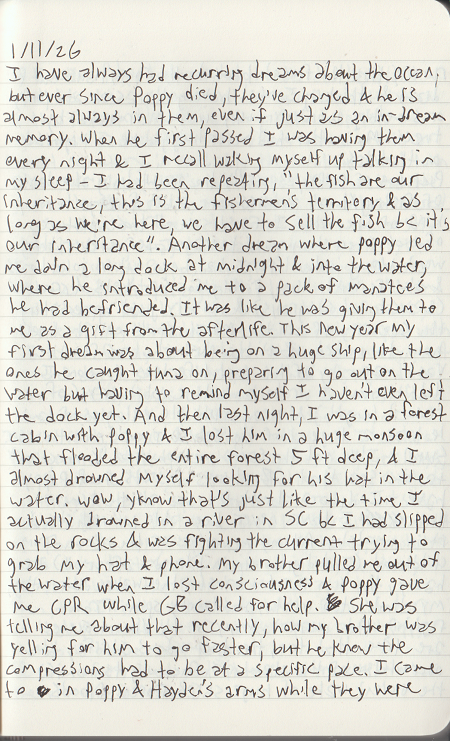 1/11/26
I have always had recurring dreams about the ocean,
but ever since Poppy died, they've changed & he is
almost always in them, even if just as an in-dream
memory. When he first passed I was having them
every night & I recall waking myself up talking in
my sleep - I had been repeating, "the fish are our
inheritance, this is the fishermen's territory & as
long as we're here, we have to sell the fish bc it's
our inheritance". Another dream where poppy led
me down a long dock at midnight & into the water,
where he introduced me to a pack of manatees
he had befriended. It was like he was giving them to
me as a gift from the afterlife. This new year my
first dream was about being on a huge ship, like the
ones he caught tuna on, preparing to go out on the
water but having to remind myself I haven't even left
the dock yet. And then last night, I was in a forest
cabin with poppy & I lost him in a huge monsoon
that flooded the entire forest 5 ft deep, & I
almost drowned myself looking for his hat in the
water. wow, yknow that's just like the time I
actually drowned in a river in SC bc I had slipped
on the rocks & was fighting the current trying to
grab my hat & phone. My brother pulled me out of
the water when I lost consciousness & poppy gave
me CPR while GB called for help. She was
telling me about that recently, how my brother was
yelling for him to go faster, but he knew the
compressions had to be at a specific pace. I came
to in Poppy & Hayden's arms while they were